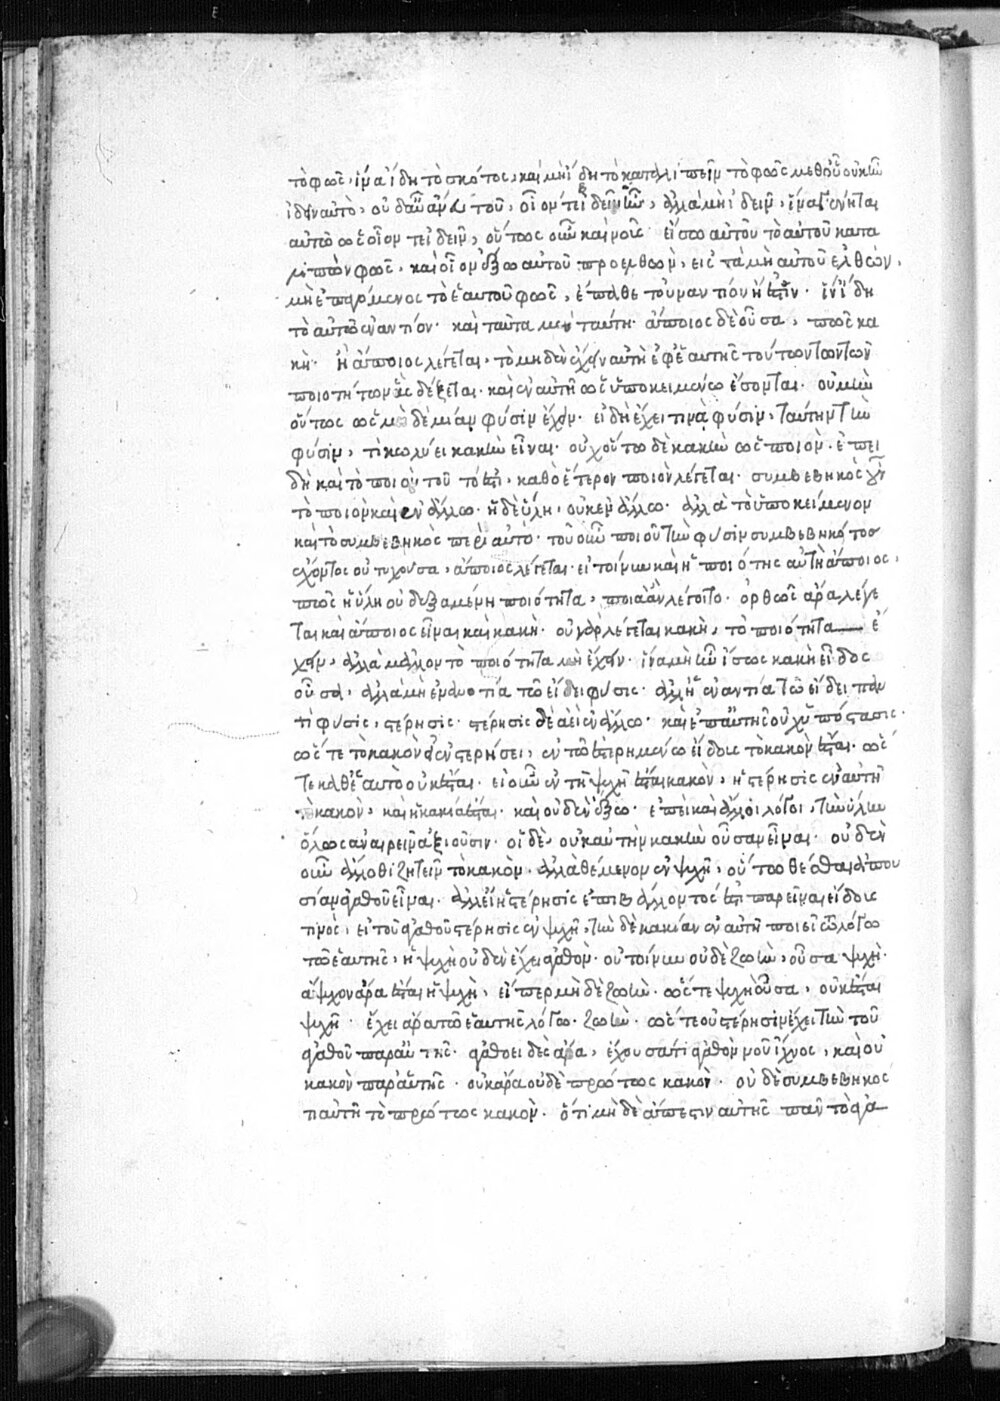 τὸ φῶς, ἵνα ἴδῃ τὸ σκότος, καὶ μὴ ἴδῃ τὸ καταλιπεῖν τὸ φῶς μεθ' οὗ οὐκ ἦν
ἰδεῖν αὐτό, οὐδ' αὖ ἄνευ τούτου οἷόν τ' ἦν ἰδεῖν, ἀλλὰ μὴ ἰδεῖν, ἵνα γένηται
αὐτῷ ὡς οἷόν τε ἰδεῖν, οὕτως οὖν καὶ νοῦς εἴσω αὐτοῦ τὸ αὐτοῦ κατα
λιπὼν φῶς, καὶ οἷον ἔξω αὐτοῦ προελθὼν, εἰς τὰ μὴ αὐτοῦ ἐλθὼν,
μὴ ἐπαγόμενος τὸ ἑαυτοῦ φῶς, ἔπαθε τοὐναντίον ἢ ἔστιν· ἵν' ἴδῃ
τὸ αὐτῷ ἐναντίον· καὶ ταῦτα μὲν ταύτῃ· ἄποιος δὲ οὖσα, πῶς κα
κή· ἢ ἄποιος λέγεται, τῷ μηδὲν ἔχειν αὐτὴ ἐφ' ἑαυτῆς τούτων τῶν
ποιοτήτων ἃς δέξεται· καὶ ἐν αὐτῇ ὡς ὑποκειμένῳ ἔσονται· οὐ μὴν
οὕτως ὡς μηδεμίαν φύσιν ἔχειν· εἰ δὴ ἔχει τινὰ φύσιν, ταύτην τὴν
φύσιν, τί κωλύει κακὴν εἶναι· οὐχ οὕτω δὲ κακὴν ὡς ποιόν· ἐπει
δὴ καὶ τὸ ποιὸν τοῦτό ἐστι, καθὸ ἕτερον ποιὸν λέγεται· συμβεβηκὸς οὖν
τὸ ποιὸν καὶ ἐν ἄλλῳ· ἡ δὲ ὕλη, οὐκ ἐν ἄλλῳ· ἀλλὰ τὸ ὑποκείμενον
καὶ τὸ συμβεβηκὸς περὶ αὐτό· τοῦ οὖν ποιοῦ τὴν φύσιν συμβεβηκότος
ἔχοντος οὐ τυχοῦσα, ἄποιος λέγεται· εἰ τοίνυν καὶ ἡ ποιότης αὐτὴ ἄποιος,
πῶς ἡ ὕλη οὐ δεξαμένη ποιότητα, ποιὰ ἂν λέγοιτο· ὀρθῶς ἄρα λέγε
ται καὶ ἄποιος εἶναι καὶ κακή· οὐ γὰρ λέγεται κακὴ, τῷ ποιότητα ἔ
χειν, ἀλλὰ μᾶλλον τῷ ποιότητα μὴ ἔχειν· ἵνα μὴ ἦν ἴσως κακὴ εἶδος
οὖσα, ἀλλὰ μὴ ἐναντία τῷ εἴδει φύσις· ἀλλ' ἡ ἐναντία τῷ εἴδει παν
τὶ φύσις, στέρησις· στέρησις δὲ ἀεὶ ἐν ἄλλῳ· καὶ ἐπ' αὐτῆς οὐχ ὑπόστασις·
ὥστε τὸ κακὸν εἰ ἐν στερήσει, ἐν τῷ ἐστερημένῳ εἴδους τὸ κακὸν ἔσται· ὥσ
τε καθ' ἑαυτὸ οὐκ ἔσται· εἰ οὖν ἐν τῇ ψυχῇ ἔσται κακὸν, ἡ στέρησις ἐν αὐτῇ
τὸ κακὸν, καὶ ἡ κακία ἔσται· καὶ οὐδὲν ἔξω· ἐπεὶ καὶ ἄλλοι λόγοι, τὴν ὕλην
ὅλως ἀναιρεῖν ἀξιοῦσιν· οἱ δὲ, οὐκ αὐτὴν κακὴν οὖσαν εἶναι· οὐδὲν
οὖν ἄλλοθι ζητεῖν τὸ κακὸν, ἀλλὰ θέμενον ἐν ψυχῇ, οὕτω θέσθαι ἀπου
σίαν ἀγαθοῦ εἶναι· ἀλλ' εἰ ἡ στέρησις ἐπιβάλλοντός ἐστι παρεῖναι εἴδους
τινὸς, εἰ τοῦ ἀγαθοῦ στέρησις ἐν ψυχῇ, τὴν δὲ κακίαν ἐν αὐτῇ ποιεῖ τῷ λόγῳ
τῷ ἑαυτῆς, ἡ ψυχὴ οὐδὲν ἔχει ἀγαθόν· οὐ τοίνυν οὐδὲ ζωὴν, οὖσα ψυχή·
ἄψυχον ἄρα ἔσται ἡ ψυχὴ, εἴπερ μηδὲ ζωήν· ὥστε ψυχὴ οὖσα, οὐκ ἔσται
ψυχή· ἔχει ἄρα τῷ ἑαυτῆς λόγῳ ζωήν· ὥστε οὐ στέρησιν ἔχει τὴν τοῦ
ἀγαθοῦ παρ' αὐτῆς· ἀγαθοειδὲς ἄρα, ἔχουσά τι ἀγαθὸν νοῦ ἴχνος, καὶ οὐ
κακὸν παρ' αὑτῆς· οὐκ ἄρα οὐδὲ πρώτως κακόν· οὐδὲ συμβεβηκός
τι αὐτῇ τὸ πρώτως κακόν· ὅτι μηδὲ ἄπεστιν αὐτῆς πᾶν τὸ ἀγα